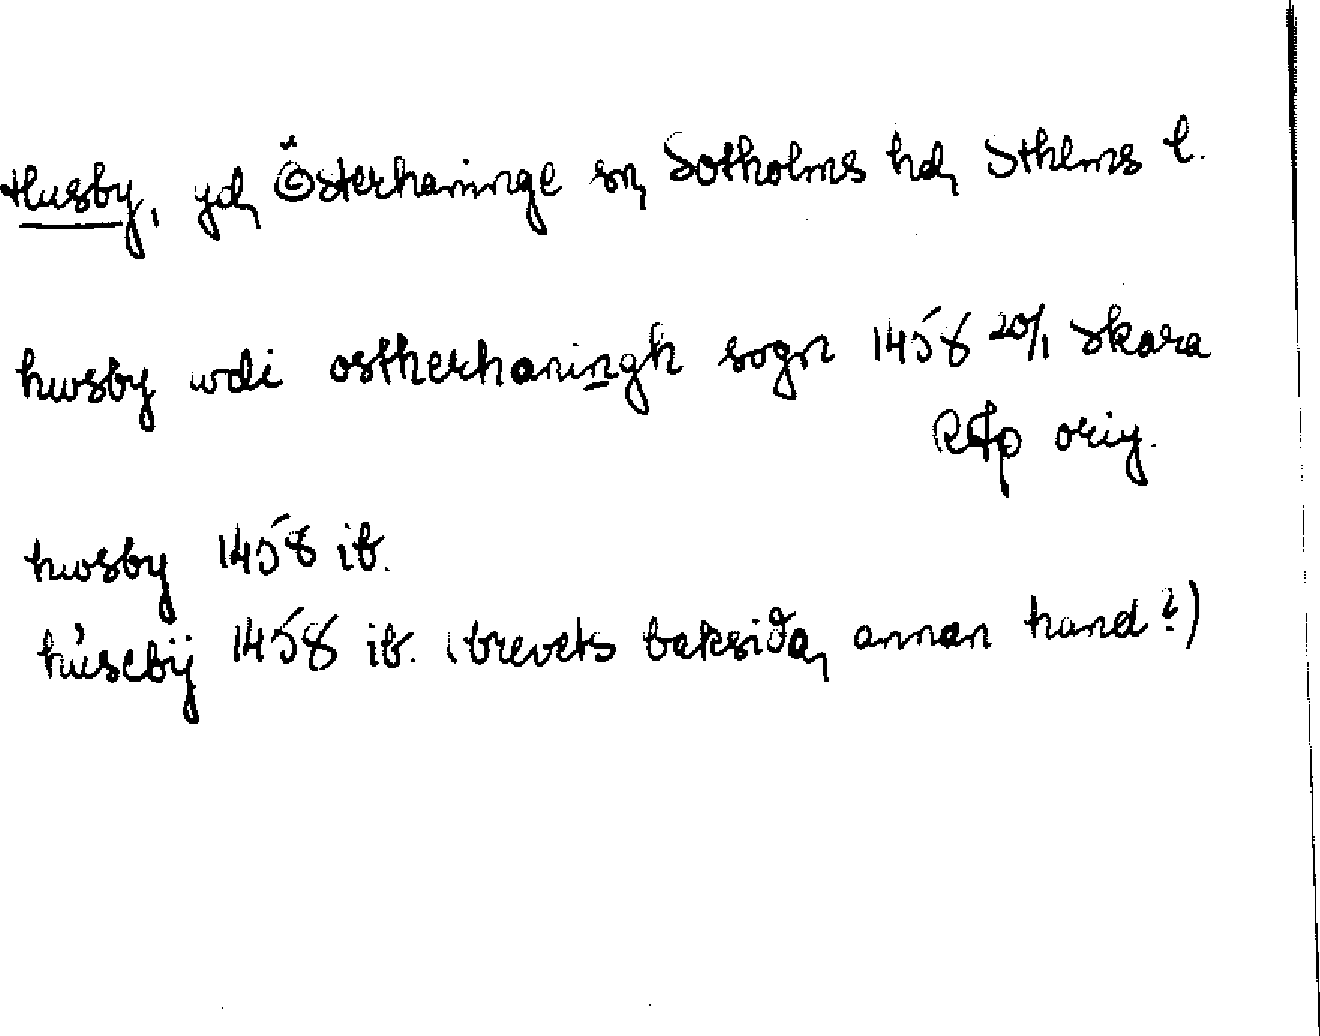 Husby, gd, Österhaninge sn, Sotholms hd, Sthlms l.
hwsby wdi ostherhaningh sogn 1458 20/1 Skara
RAp orig.
hwsby 1458 ib.
húsebÿ 1458 ib. (brevets baksida, annan hand?)